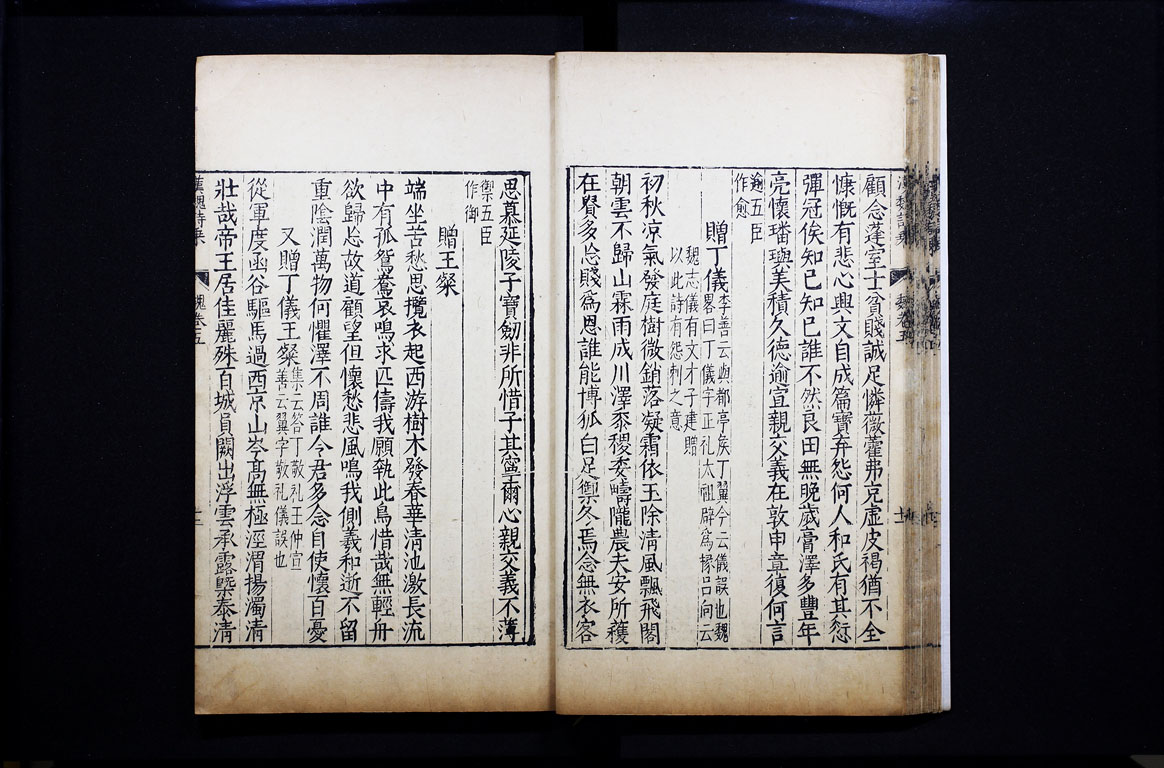 顧念蓬室士貧賤誠足憐薇藿弗充虛皮褐猶不全
慷慨有悲心興文自成篇寶弃怨何人和氏有其愆
彈冠俟知己知已誰不然良田無晚歲膏澤多豐年
亮懷璠璵美積久德逾宣親交義在敦申章復何言
逾五臣
作愈
贈丁儀
李善云與都亭矦丁翼今云儀誤也魏
畧曰丁儀字正礼太祖辟爲掾吕向云
魏志儀有文才子建贈
以此詩有怨刺之意
初秋凉氣發庭樹微銷落凝霜依玉除清風飄飛閣
朝雲不歸山霖雨成川澤黍稷委疇隴農夫安所穫
在貴多忘賤爲恩誰能博狐白足禦冬焉念無衣客
思慕延陵子寶劒非所惜子其寧爾心親交義不薄
禦五臣
作御
贈王粲
端坐苦愁思攬衣起西游樹木發春華清池激長流
中有孤鴛鴦哀鳴求匹儔我願執此鳥惜哉無輕舟
欲歸忘故道顧望但懷愁悲風鳴我側羲和逝不留
重陰潤萬物何懼澤不周誰令君多念自使懷百憂
又贈丁儀王粲
集云答丁敬礼王仲宣
善云翼字敬礼儀誤也
從軍度函谷驅馬過西京山岑髙無極涇渭揚濁清
壯哉帝王居佳麗殊百城員闕出浮雲承露槩泰清
漢魏詩集
魏卷五